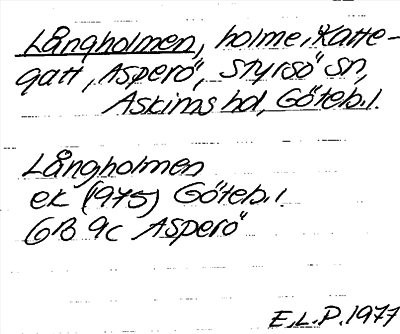 Långholmen, holme i Katte-
gatt, Asperö, Styrsö sn,
Askims hd, Göteb. l.
Långholmen
ek (1975) Göteb. l.
6B 9c Asperö
E.L.P. 1977